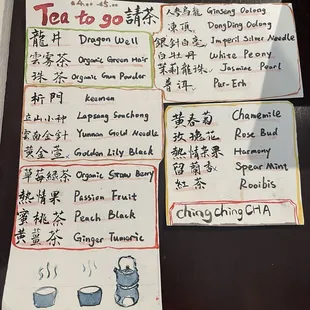 Tea to go 請茶
龍井 Dragon Well
雲霧茶 Organic Green Hair
珠茶 Organic Gun Powder
祈門 Keemen
正山小種 Lapsang Souchong
雲南金針 Yunnan Gold Needle
Goldan Lily Black
草莓綠茶 Organic Straw Berry
熱情果 Passion Fruit
蜜桃茶 Peach Black
黃薑茶 Ginger Tumoric
人參烏龍 Ginseng Oolong
凍頂 DongDing Oolong
銀針白毫 Imperil Silver Needle
白牡丹 White Peony
茉莉龍珠 Jasmine Pearl
普洱 Pur-Erh
黃春菊 Chamemile
玫瑰花 Rose Bud
熱情 Harmony
留蘭香 Spear Mint
紅茶 Rooibis
chingchingCHA